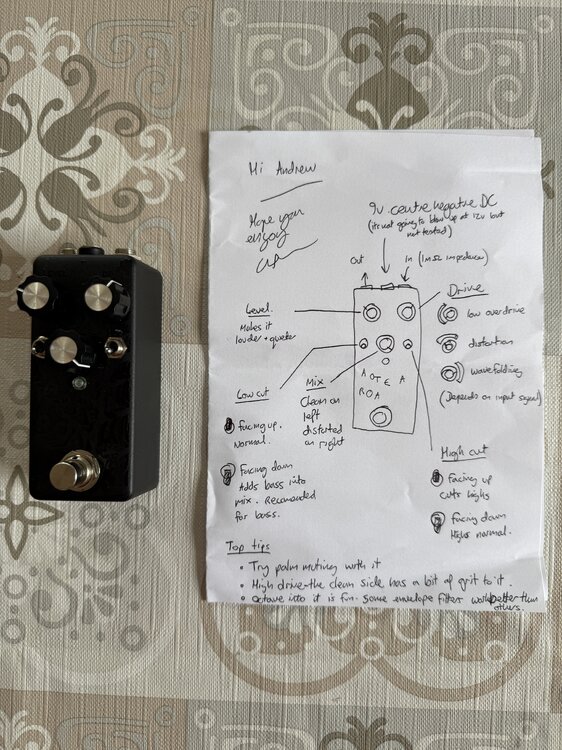 Hi Andrew
Hope you
enjoy
9v centre negative DC
(its not going to blow up at 12v but
not tested)
Out
In (1MΩ impedance)
Level
Makes it
louder + quieter
Drive
low overdrive
distortion
wavefolding
(Depends on input signal)
Low cut
facing up.
normal.
Facing down
Adds bass into
mix. Recomended
for bass.
Mix
Clean on
left
distorted
on right
A OTE A
ROA
High cut
facing up
cuts highs
facing down
Highs normal.
Top tips
• Try palm muting with it
• High drive the clean side has a bit of grit to it.
• Octave into it is fun. Some envelope filters work better than
others.